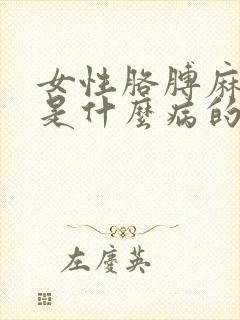 女性胳膊麻
是什麼病的
左慶英